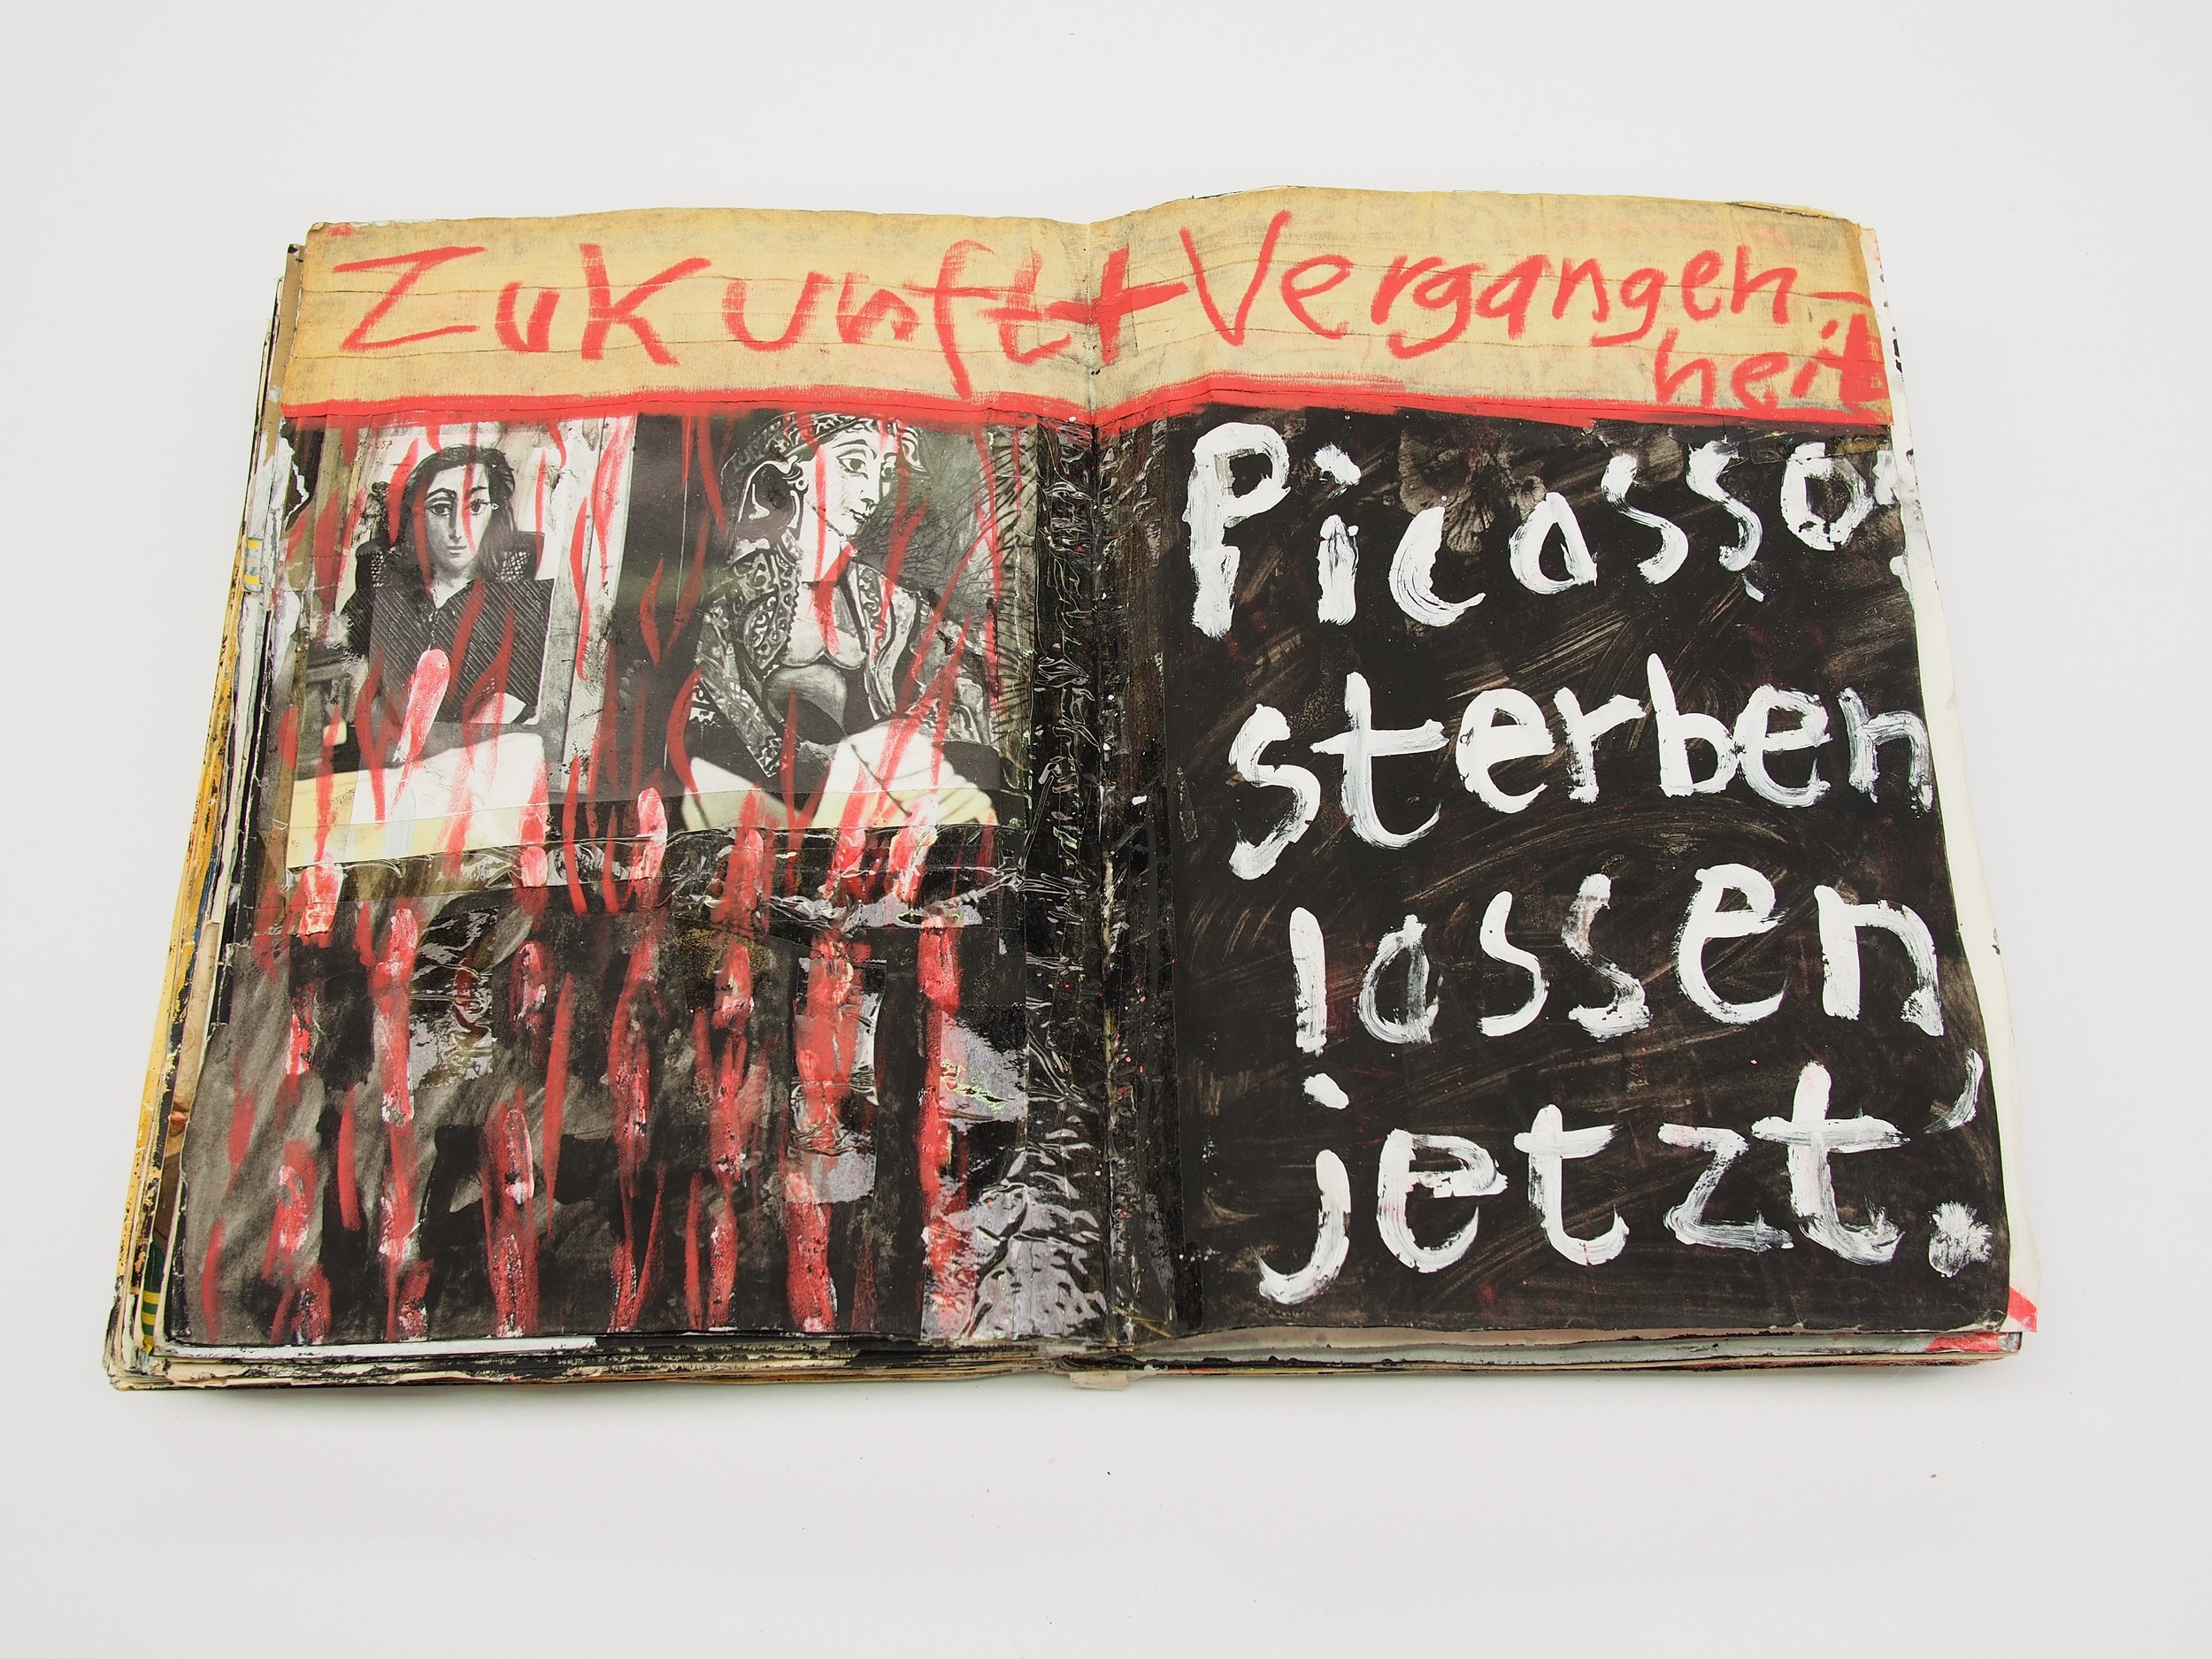 Zukunft + Vergangen-
heit
Picasso,
sterben
lassen,
jetzt.